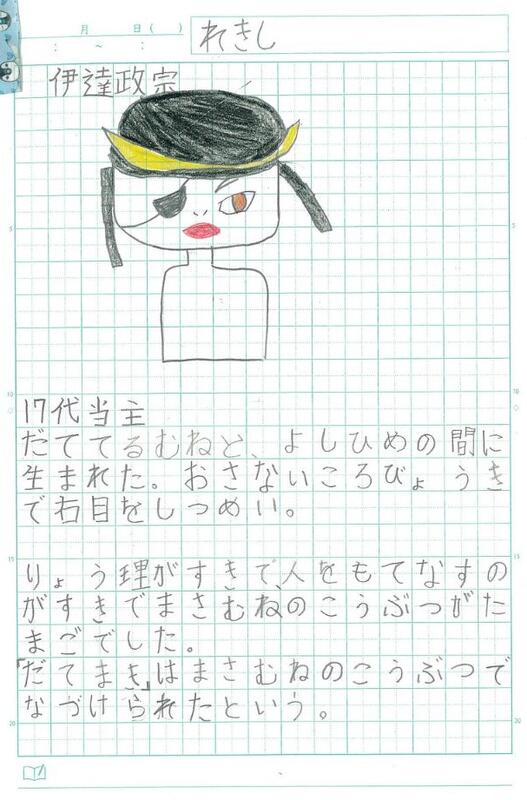 月 日( )
: ~ :
れきし
伊達政宗
5
5
10
10
17代当主
だててるむねと、よしひめの間に
生まれた。おさないころびょうき
で右目をしつめい。
15
15
りょう理がすきで、人をもてなすの
がすきでまさむねのこうぶつがた
まごでした。
「だてまき」はまさむねのこうぶつで
なづけられたという。
20
20